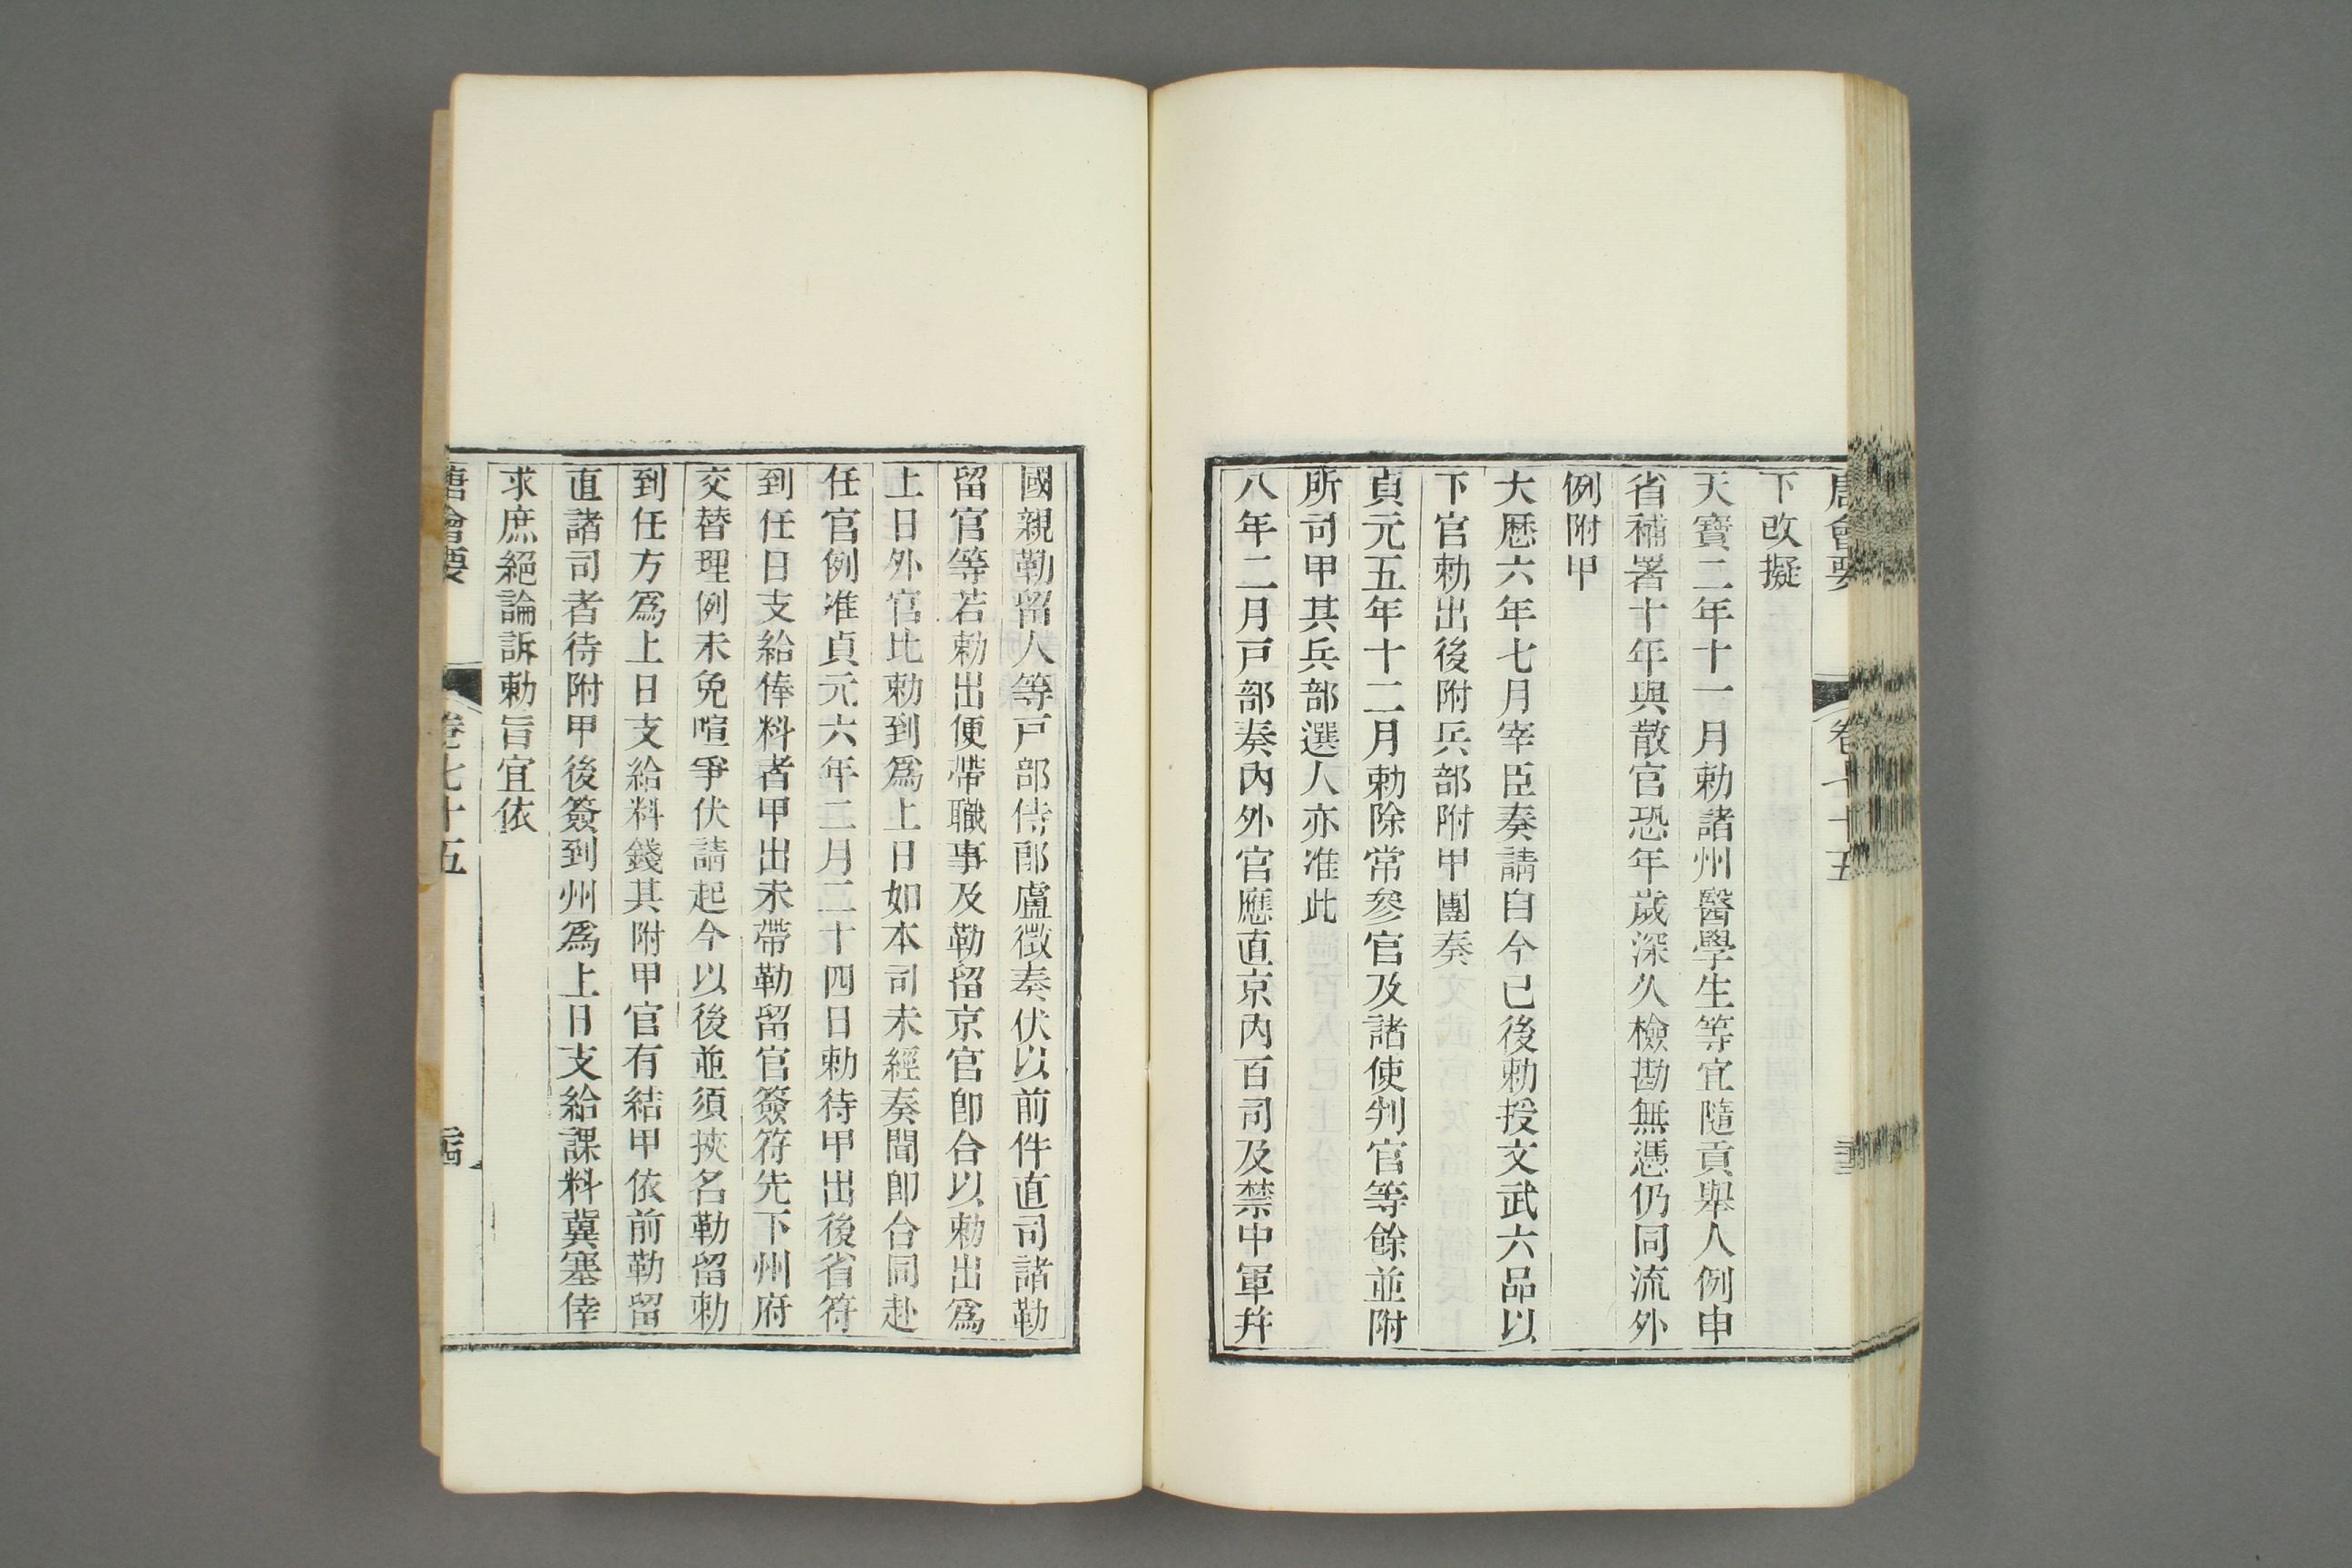 唐會要 卷七十五
下改擬
天寶二年十一月勅諸州醫學生等宜隨貢舉人例申
省補署十年與散官恐年歲深久檢勘無憑仍同流外
例附甲
大歷六年七月宰臣奏請自今已後勅授文武六品以
下官勅出後附兵部附甲團奏
貞元五年十二月勅除常參官及諸使判官等餘並附
所司甲其兵部選人亦准此
八年二月戸部奏內外官應直京內百司及禁中軍幷
國親勒留人等戸部侍郎盧徵奏伏以前件直司諸勒
留官等若勅出便帶職事及勒留京官卽合以勅出爲
上日外官比勅到爲上日如本司未經奏聞卽合同赴
任官例准貞元六年二月二十四日勅待甲出後省符
到任日支給俸料者甲出未帶勒留官簽符先下州府
交替理例未免喧爭伏請起今以後並須挾名勒留勅
到任方爲上日支給料錢其附甲官有結甲依前勒留
直諸司者待附甲後簽到州爲上日支給課料冀塞倖
求庶絕論訴勅旨宜依
唐會要 卷七十五 二十四